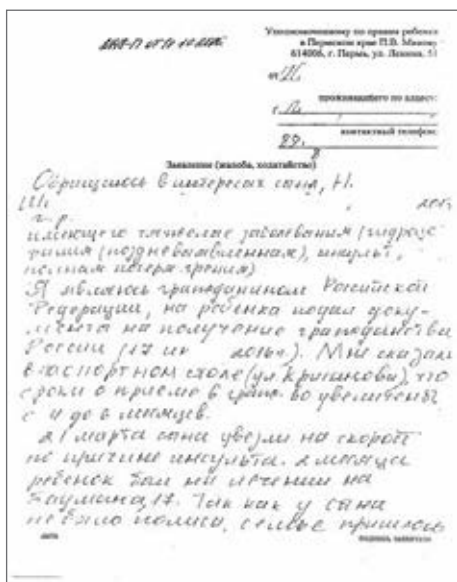 Уполномоченному по правам ребенка
в Пермском крае П.В. Микову
614006, г. Пермь, ул. Ленина, 51
от Ш.
проживающего по адресу:
г. П.
контактный телефон:
89
Заявление (жалоба, ходатайство)
Обращаюсь в интересах сына, Н.
Ш.
г.р.
имеющего тяжелые заболевания
инсульт,
полная потеря зрения)
Я являюсь гражданином Российской
Федерации, на ребенка подал доку-
менты на получение гражданства
России (17 2016г.). Мне сказали
в паспортном столе (ул. ), что
сроки о приеме в увеличены
с 4 до 6 месяцев.
21 марта сына увезли на скорой
по причине инсульта. 2 месяца
ребенок был на лечении на
Баумана, 17. Так как у сына
не было полиса, семье пришлось
дата подпись заявителя